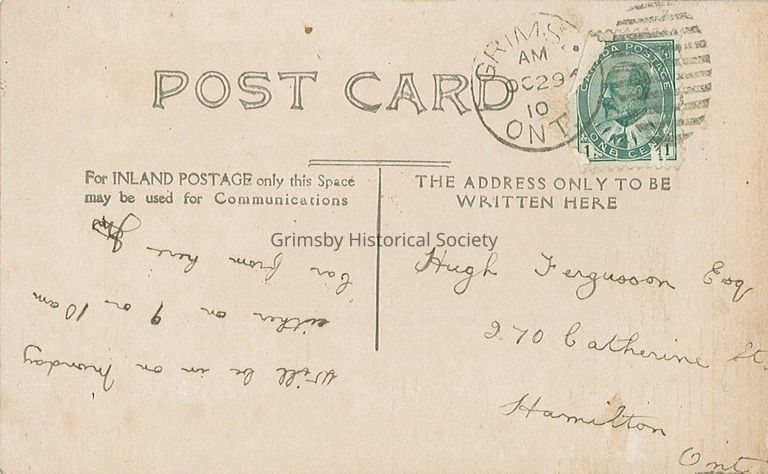 POST CARD
GRIMSBY
AM
OC 29
10
ONT
CANADA POSTAGE
ONE CENT
1 1
For INLAND POSTAGE only this Space
may be used for Communications
THE ADDRESS ONLY TO BE
WRITTEN HERE
Will be in on Monday
either on 9 or 10 am
car from here
Grimsby Historical Society
Hugh Fergusson Esq
270 Catherine St.
Hamilton
Ont